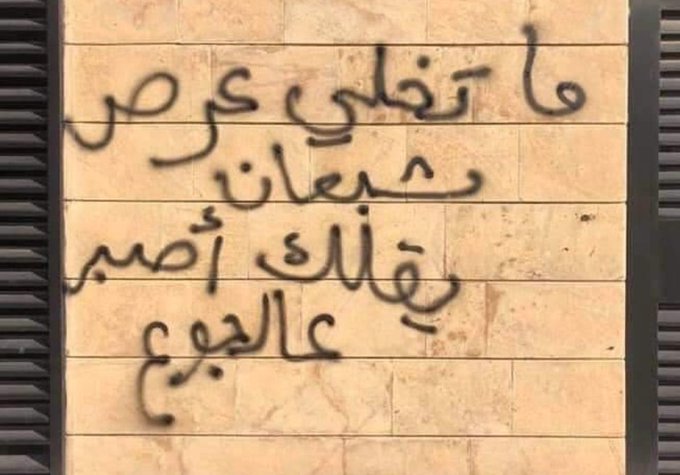 ما تخلي عرص
شبعان
يقلك أصبر
عالجوع